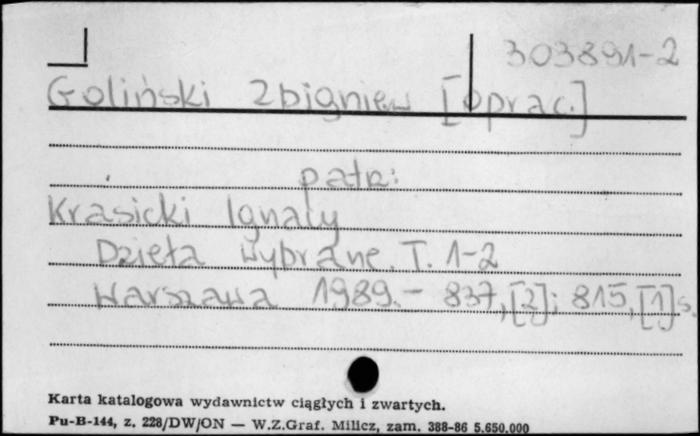 303891-2
Goliński Zbigniew [oprac.]
patrz:
Krasicki Ignacy
Dzieła wybrane. T. 1-2
Warszawa 1989. - 837, [2]; 815, [1] s.
Karta katalogowa wydawnictw ciągłych i zwartych.
Pu-B-144, z. 228/DW/ON — W.Z.Graf. Milicz, zam. 388-86 5.650.000